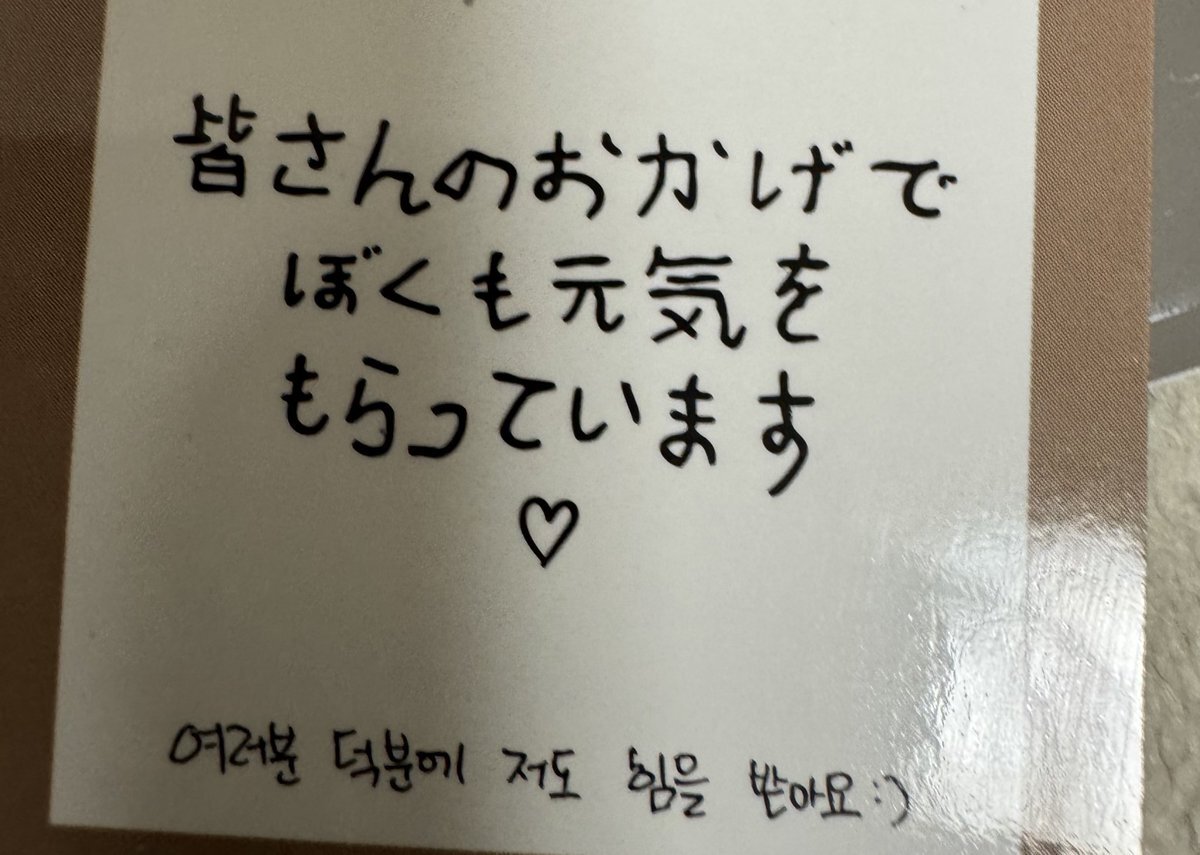 皆さんのおかげで
ぼくも元気を
もらっています
♡
여러분 덕분에 저도 힘을 받아요 :)